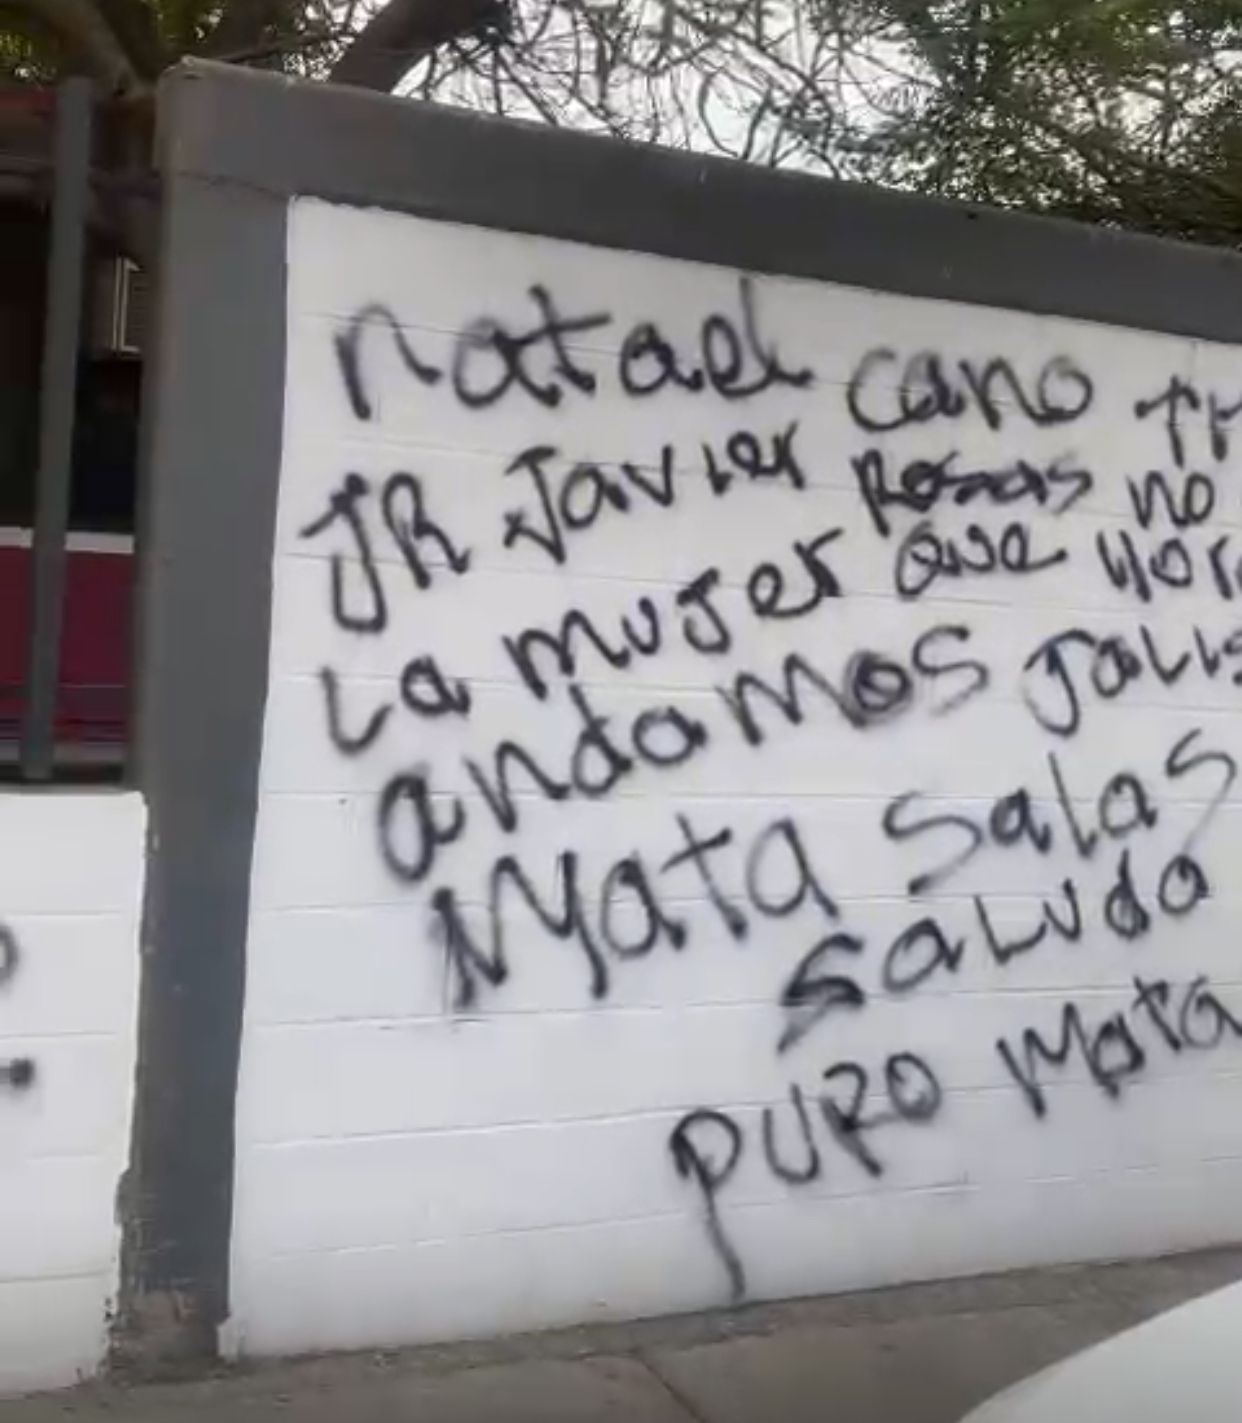 natael cano
JR Javier Rosas no
La mujer que llor
andamos Jalis
Mata Salas
Saluda
PURO Mata